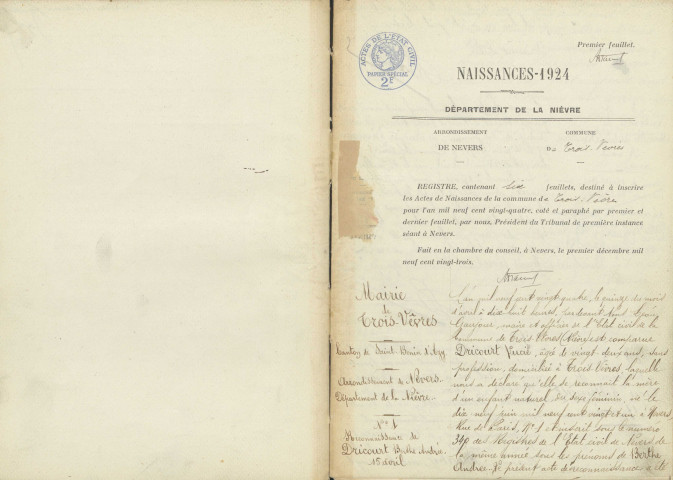 Premier feuillet.
ACTES DE L'ÉTAT CIVIL
PAPIER SPÉCIAL
2F
NAISSANCES-1924
DÉPARTEMENT DE LA NIÈVRE
ARRONDISSEMENT
DE NEVERS
COMMUNE
De Trois-Vèvres
REGISTRE, contenant six feuillets, destiné à inscrire
les Actes de Naissances de la commune de Trois-Vèvres
pour l'an mil neuf cent vingt-quatre, coté et paraphé par premier et
dernier feuillet, par nous, Président du Tribunal de première instance
séant à Nevers.
Fait en la chambre du conseil, à Nevers, le premier décembre mil
neuf cent vingt-trois.
Mairie
de
Trois-Vèvres
Canton de Saint-Benin d'Azy
Arrondissement de Nevers
Département de la Nièvre
N° 1
Reconnaissance de
Dricourt Berthe Andrée
15 avril
L'an mil neuf cent vingt quatre, le quinze du mois
d'avril à dix huit heures, par devant nous
maire et officier de l'Etat civil de la
commune de Trois Vèvres (Nièvre) est comparue
Dricourt âgée de vingt deux ans, sans
profession, domiciliée à Trois-Vèvres, laquelle
nous a déclaré qu'elle se reconnait la mère
d'un enfant naturel du sexe féminin né le
dix neuf juin mil neuf cent vingt et un à Nevers
Rue de Paris, N° 1 et inscrit sous le numéro
340 des Registres de l'Etat civil de Nevers de
la même année sous les prénoms de Berthe
Andrée. Le présent acte de reconnaissance a été